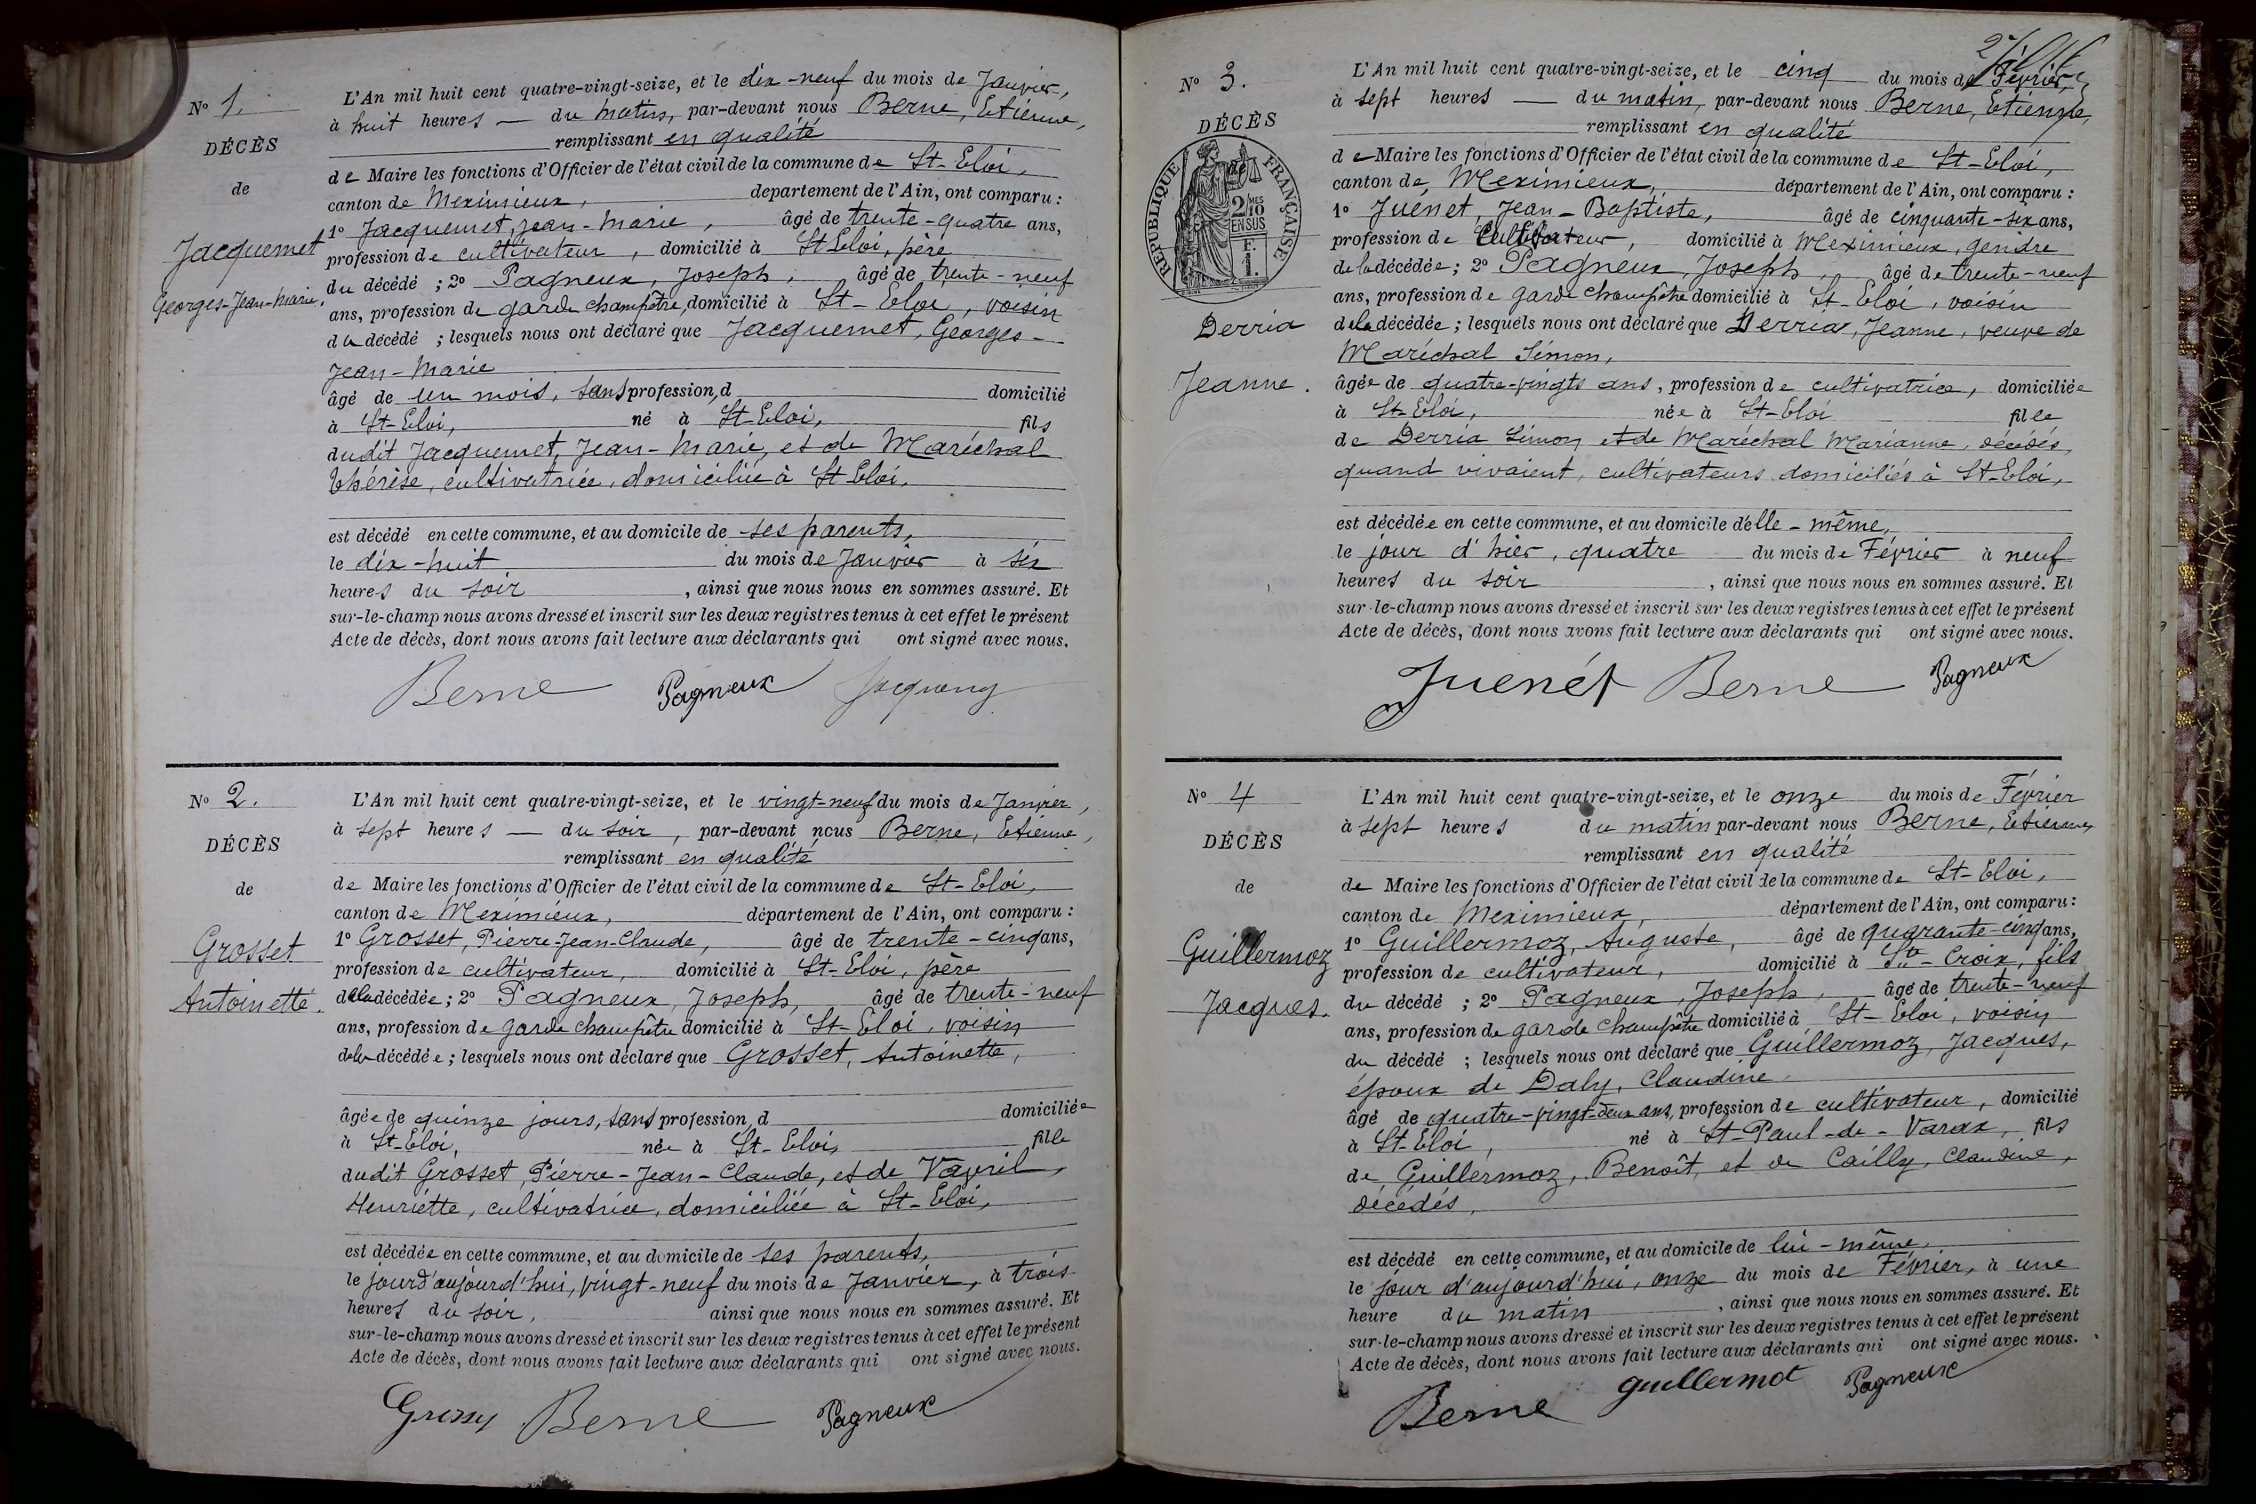 N° 1.
DÉCÈS
de
Jacquemet
Georges-Jean-Marie.
L'An mil huit cent quatre-vingt-seize, et le dix-neuf du mois de Janvier,
à huit heures — du matin, par-devant nous Berne, Etienne,
remplissant en qualité
de Maire les fonctions d'Officier de l'état civil de la commune de St-Eloi,
canton de Meximieux, département de l'Ain, ont comparu :
1° Jacquemet, Jean-Marie, âgé de trente-quatre ans,
profession de cultivateur, domicilié à St Eloi, père
du décédé ; 2° Pagneux, Joseph, âgé de trente-neuf
ans, profession de garde champêtre, domicilié à St-Eloi, voisin
du décédé ; lesquels nous ont déclaré que Jacquemet, Georges-
Jean-Marie
âgé de un mois, sans profession, d domicilié
à St-Eloi, né à St-Eloi, fils
dudit Jacquemet, Jean-Marie, et de Maréchal
Thérèse, cultivatrice, domiciliée à St Eloi,
est décédé en cette commune, et au domicile de ses parents,
le dix-huit du mois de Janvier à six
heures du soir, ainsi que nous nous en sommes assuré. Et
sur-le-champ nous avons dressé et inscrit sur les deux registres tenus à cet effet le présent
Acte de décès, dont nous avons fait lecture aux déclarants qui ont signé avec nous.
Berne Pagneux
N° 2.
DÉCÈS
de
Grosset
Antoinette.
L'An mil huit cent quatre-vingt-seize, et le vingt-neuf du mois de Janvier,
à sept heures — du soir, par-devant nous Berne, Etienne,
remplissant en qualité
de Maire les fonctions d'Officier de l'état civil de la commune de St-Eloi,
canton de Meximieux, département de l'Ain, ont comparu :
1° Grosset, Pierre-Jean-Claude, âgé de trente-cinq ans,
profession de cultivateur, domicilié à St-Eloi, père
de la décédée ; 2° Pagneux, Joseph, âgé de trente-neuf
ans, profession de garde champêtre domicilié à St-Eloi, voisin
de la décédée ; lesquels nous ont déclaré que Grosset, Antoinette,
âgée de quinze jours, sans profession, d domiciliée
à St-Eloi, née à St-Eloi, fille
dudit Grosset, Pierre-Jean-Claude, et de Vayril,
Henriette, cultivatrice, domiciliée à St-Eloi,
est décédée en cette commune, et au domicile de ses parents,
le jour d'aujourd'hui, vingt-neuf du mois de Janvier, à trois
heures du soir, ainsi que nous nous en sommes assuré. Et
sur-le-champ nous avons dressé et inscrit sur les deux registres tenus à cet effet le présent
Acte de décès, dont nous avons fait lecture aux déclarants qui ont signé avec nous.
Berne Pagneux
N° 3.
DÉCÈS
de
RÉPUBLIQUE FRANÇAISE
2/10 MES
EN SUS
F.
1.
Derria
Jeanne.
L'An mil huit cent quatre-vingt-seize, et le cinq du mois de Février,
à sept heures — du matin, par-devant nous Berne, Etienne,
remplissant en qualité
de Maire les fonctions d'Officier de l'état civil de la commune de St-Eloi,
canton de Meximieux, département de l'Ain, ont comparu :
1° Juénet, Jean-Baptiste, âgé de cinquante-six ans,
profession de cultivateur, domicilié à Meximieux, gendre
de la décédée ; 2° Pagneux, Joseph, âgé de trente-neuf
ans, profession de garde champêtre domicilié à St-Eloi, voisin
de la décédée ; lesquels nous ont déclaré que Derria, Jeanne, veuve de
Maréchal Simon,
âgée de quatre-vingts ans, profession de cultivatrice, domiciliée
à St-Eloi, née à St-Eloi fille
de Derria Simon et de Maréchal Marianne, décédés,
quand vivaient, cultivateurs domiciliés à St-Eloi,
est décédée en cette commune, et au domicile d'elle-même,
le jour d'hier, quatre du mois de Février à neuf
heures du soir, ainsi que nous nous en sommes assuré. Et
sur-le-champ nous avons dressé et inscrit sur les deux registres tenus à cet effet le présent
Acte de décès, dont nous avons fait lecture aux déclarants qui ont signé avec nous.
Juenét Berne Pagneux
N° 4
DÉCÈS
de
Guillermoz
Jacques.
L'An mil huit cent quatre-vingt-seize, et le onze du mois de Février
à sept heures du matin par-devant nous Berne, Etienne,
remplissant en qualité
de Maire les fonctions d'Officier de l'état civil de la commune de St-Eloi,
canton de Meximieux, département de l'Ain, ont comparu :
1° Guillermoz, Auguste, âgé de quarante-cinq ans,
profession de cultivateur, domicilié à Ste-Croix, fils
du décédé ; 2° Pagneux, Joseph, âgé de trente-neuf
ans, profession de garde champêtre domicilié à St-Eloi, voisin
du décédé ; lesquels nous ont déclaré que Guillermoz, Jacques,
époux de Daly, Claudine,
âgé de quatre-vingt-deux ans, profession de cultivateur, domicilié
à St-Eloi, né à St-Paul-de-Varax, fils
de Guillermoz, Benoît, et de Cailly, Claudine,
décédés,
est décédé en cette commune, et au domicile de lui-même,
le jour d'aujourd'hui, onze du mois de Février, à une
heure du matin, ainsi que nous nous en sommes assuré. Et
sur-le-champ nous avons dressé et inscrit sur les deux registres tenus à cet effet le présent
Acte de décès, dont nous avons fait lecture aux déclarants qui ont signé avec nous.
Berne guillermot Pagneux